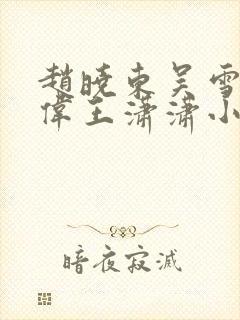 趙曉東吴雪
偉王潇潇小
暗夜寂滅